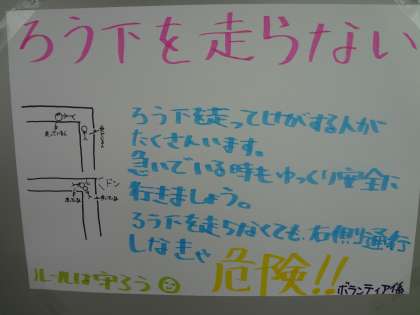 ろう下を走らない
ろう下を走ってけがする人が
たくさんいます。
急いでいる時もゆっくり安全に
行きましょう。
ろう下を走らなくても、右側通行
しなきゃ
危険!!
ドン
ルールは守ろう
ボランティア係